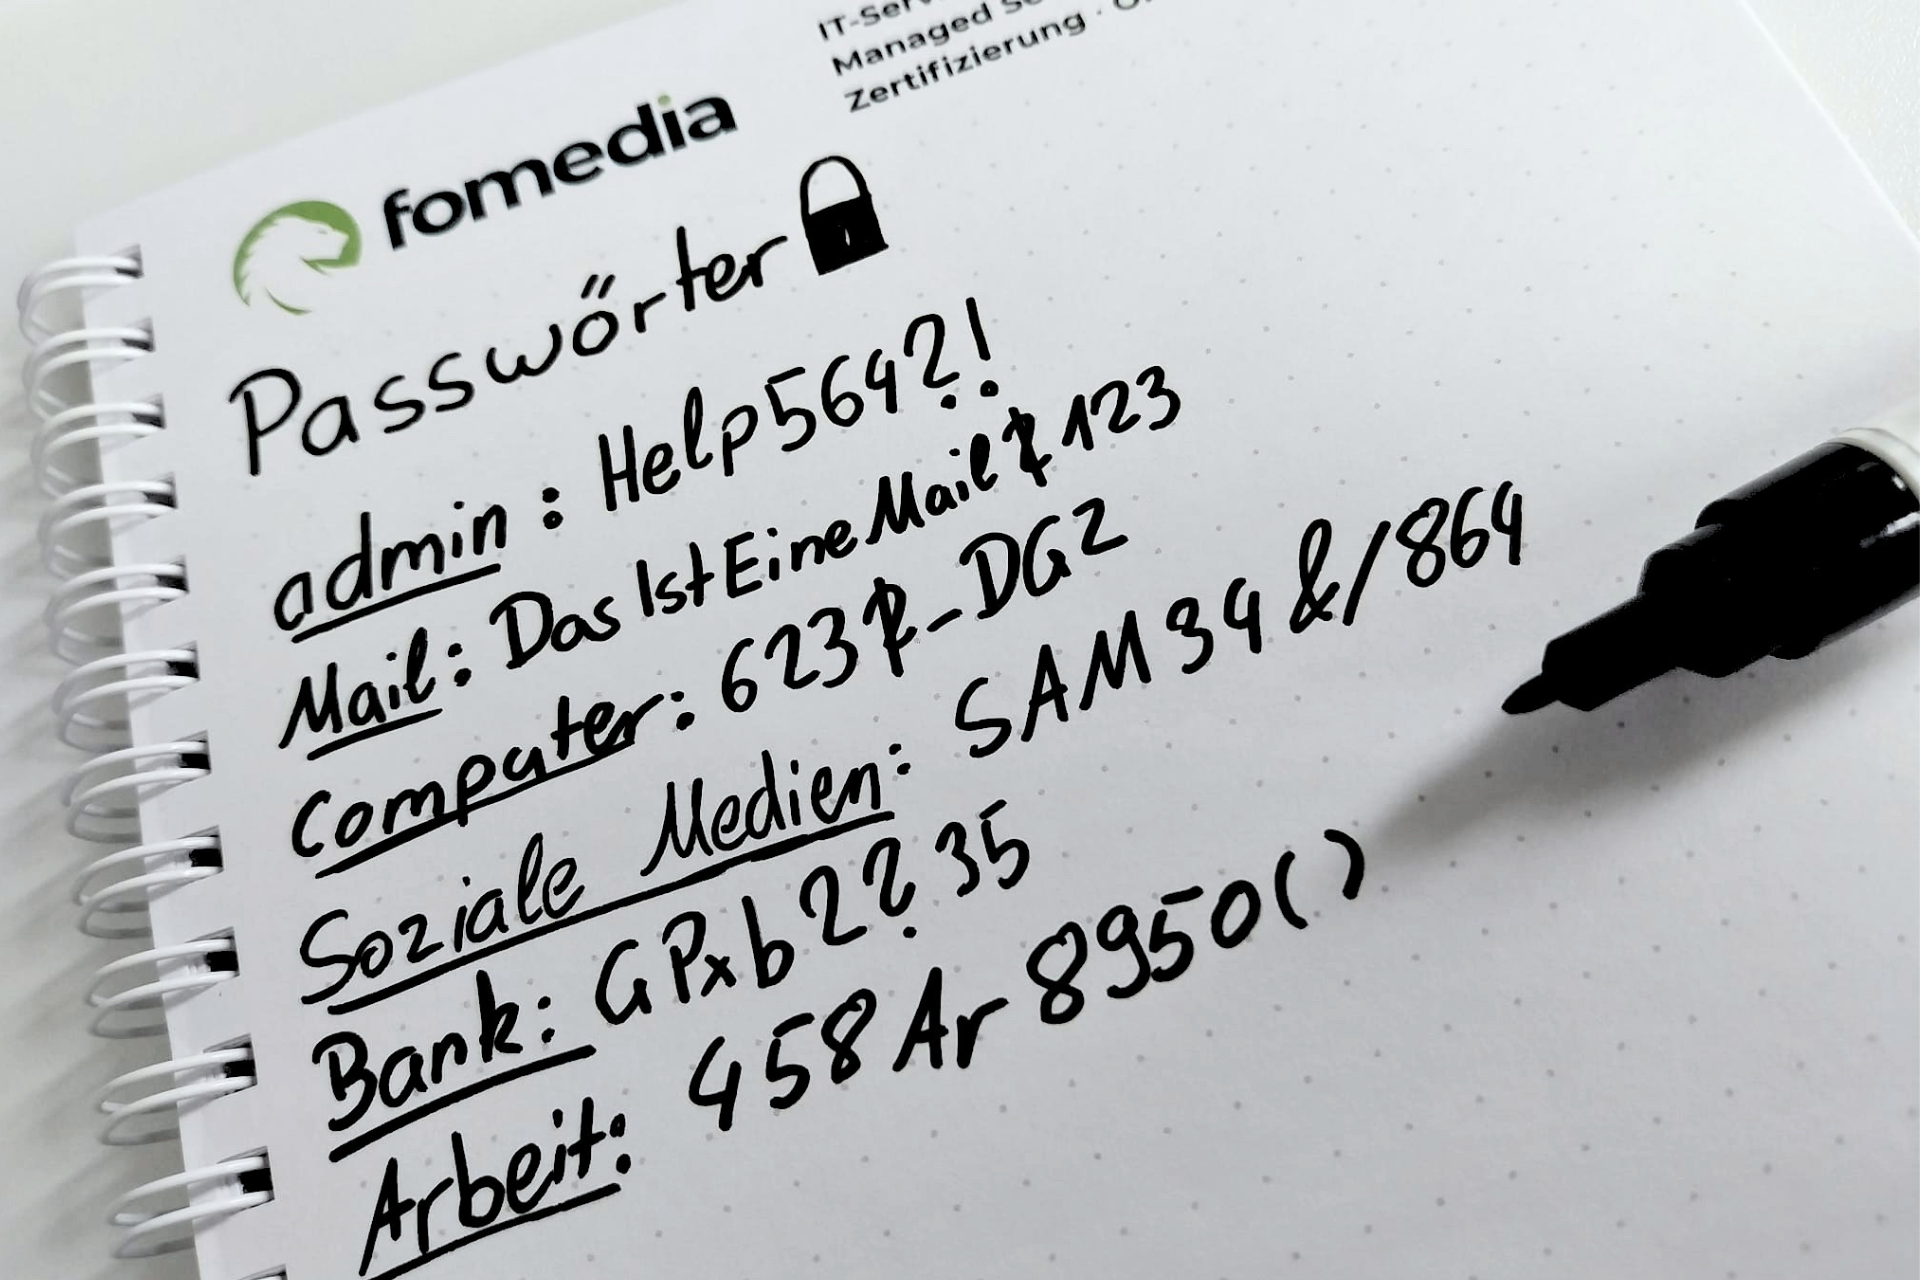 IT-Serv
Managed Se
Zertifizierung ·
fomedia
Passwörter
admin: Help564?!
Mail: DasIstEineMail$123
Computer: 623$-DG2
Soziale Medien: SAM34&/864
Bank: GPxb2?35
Arbeit: 458Ar8950()